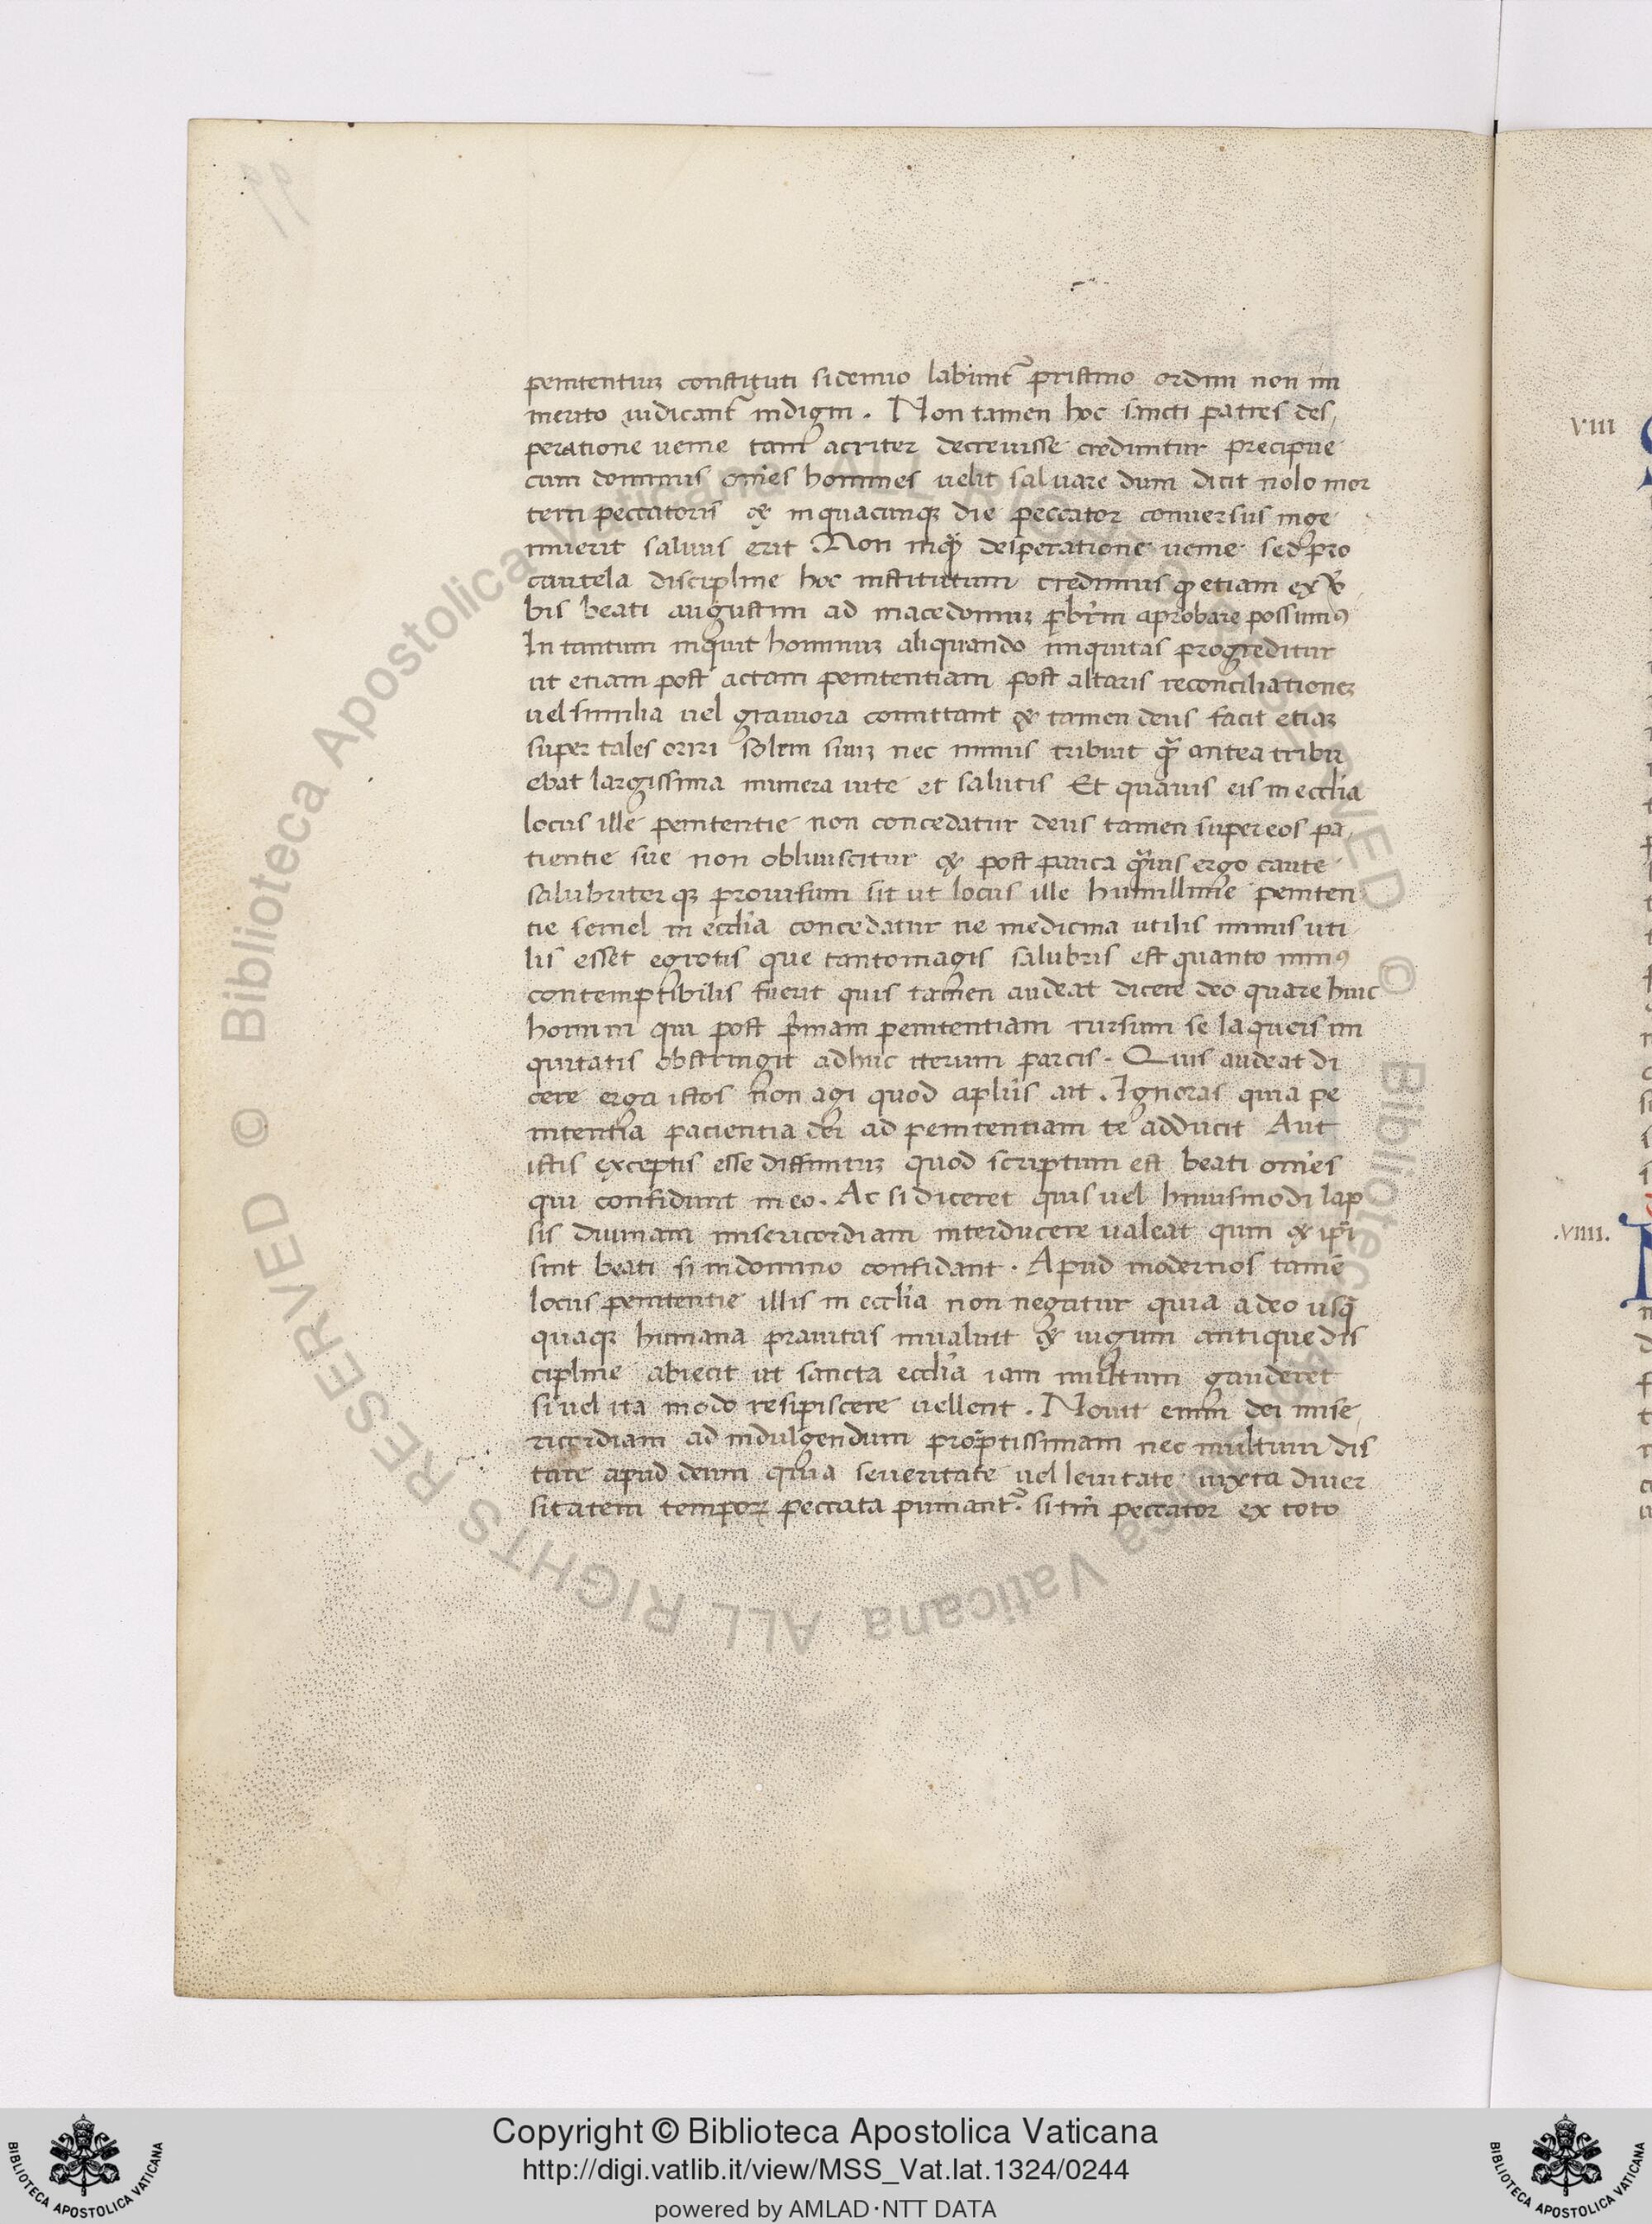 penitentium constituti si denuo labuntr̄ pristino ordini non im
merito iudicantr̄ indigni . Non tamen hoc sancti patres des,
peratione uenie tam acriter decreuisse creduntur precipue
cum dominus om̄es homines uelit saluare dum dicit nolo mor
tem peccatoris & in quacunqȝ die peccator conuersus inge
muerit saluus erit Non inqȝ desperatione uenie sed pro
cautela discipline hoc institutum credimus qꝫ etiam ex v̄
bis beati augustini ad macedoniuȝ pr̄brm aprobare possumꝰ
In tantum inquit hominuȝ aliquando iniquitas progreditur
ut etiam post actam penitentiam post altaris reconciliationeȝ
uel similia uel grauiora comittant & tamen deus facit etiaȝ
super tales oriri solem suuȝ nec minus tribuit qȝ̄ antea tribu
ebat largissima munera uite et salutis Et quāuis eis in eccl̄ia
locus ille penitentie non concedatur deus tamen super eos pa,
tientie sue non obliuiscitur & post pauca qȝ̄uis ergo caute
salubriter qȝ prouisum sit ut locus ille humillime peniten
tie semel in eccl̄ia concedatur ne medicina utilis minus uti
lis esset egrotis que tantomagis salubris est quanto minꝰ
contemptibilis fuerit quis tamen audeat dicere deo quare huic
homini qui post p̄mam penitentiam rursum se laqueis ini
quitatis obstringit adhuc iterum parcis . Quis audeat di
cere erga istos non agi quod apl̄us ait . Ignoras quia pe
nitentia pacientia dei ad penitentiam te adducit Aut
istis exceptis esse diffinituȝ quod scriptum est beati om̄es
qui confidunt in eo . Ac si diceret quis uel huiusmodi lap
sis diuinam misericordiam interducere ualeat quin & ip̄i
sint beati si in domino confidant . Apud modernos tamē
locus penitentie illis in eccl̄ia non negatur quia adeo usq̄
quaqȝ humana prauitas inualuit & iugum antique dis
cipline abiecit ut sancta eccl̄ia iam multum gauderet
si uel ita modo resipiscere uellent . Nouit enim dei mise,
ricordiam ad indulgendum promptissimam nec multum dis
tare apud deum quia seueritate uel leuitate iuxta diuer
sitatem temporꝝ peccata puniantr̄ . si tm̄ peccator ex toto
VIII
.VIIII.
Biblioteca Apostolica Vaticana ALL RIGHTS RESERVED ©
Copyright © Biblioteca Apostolica Vaticana
http://digi.vatlib.it/view/MSS_Vat.lat.1324/0244
powered by AMLAD·NTT DATA
BIBLIOTECA APOSTOLICA VATICANA
BIBLIOTECA APOSTOLICA VATICANA